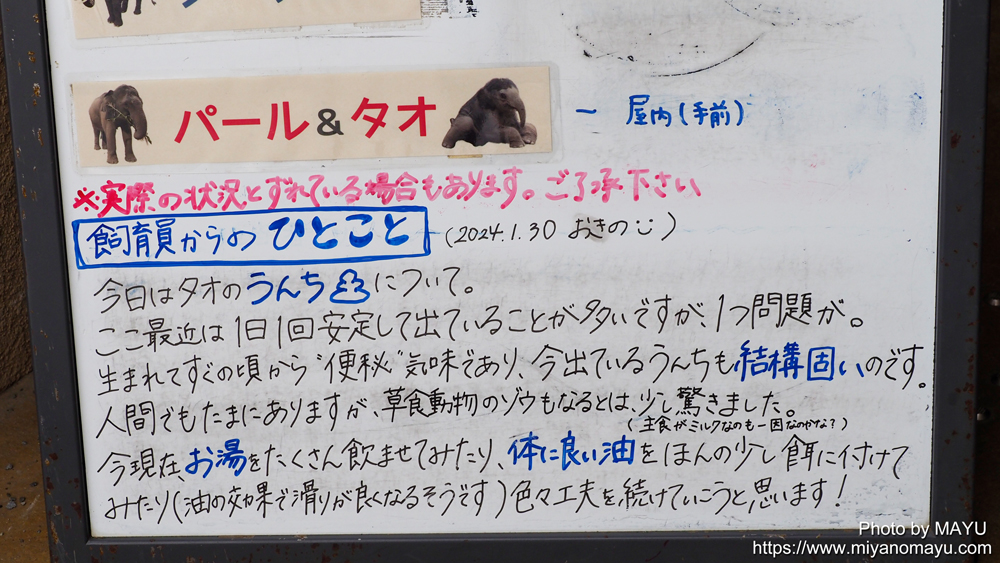 パール&タオ
－ 屋内(手前)
※実際の状況とずれている場合もあります。ご了承下さい
飼育員からの ひとこと (2024.1.30 おきの)
今日はタオのうんちについて。
ここ最近は1日1回安定して出ていることが多いですが、1つ問題が。
生まれてすぐの頃から"便秘"気味であり、今出ているうんちも結構固いのです。
人間でもたまにありますが、草食動物のゾウもなるとは、少し驚きました。
(主食がミルクなのも一因なのかな?)
今現在、お湯をたくさん飲ませてみたり、体に良い油をほんの少し餌に付けて
みたり(油の効果で滑りが良くなるそうです)色々工夫を続けていこうと思います!
Photo by MAYU
https://www.miyanomayu.com